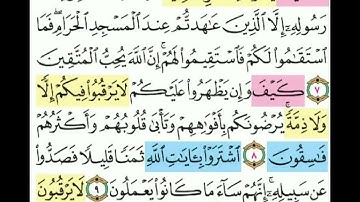 رَسُولِهِۦٓ إِلَّا ٱلَّذِينَ عَٰهَدتُّمْ عِندَ ٱلْمَسْجِدِ ٱلْحَرَامِ ۖ فَمَا
ٱسْتَقَٰمُوا۟ لَكُمْ فَٱسْتَقِيمُوا۟ لَهُمْ ۚ إِنَّ ٱللَّهَ يُحِبُّ ٱلْمُتَّقِينَ
٧ كَيْفَ وَإِن يَظْهَرُوا۟ عَلَيْكُمْ لَا يَرْقُبُوا۟ فِيكُمْ إِلًّا
وَلَا ذِمَّةً ۚ يُرْضُونَكُم بِأَفْوَٰهِهِمْ وَتَأْبَىٰ قُلُوبُهُمْ وَأَكْثَرُهُمْ
فَٰسِقُونَ ٨ ٱشْتَرَوْا۟ بِـَٔايَٰتِ ٱللَّهِ ثَمَنًا قَلِيلًا فَصَدُّوا۟
عَن سَبِيلِهِۦٓ ۚ إِنَّهُمْ سَآءَ مَا كَانُوا۟ يَعْمَلُونَ ٩ لَا يَرْقُبُونَ